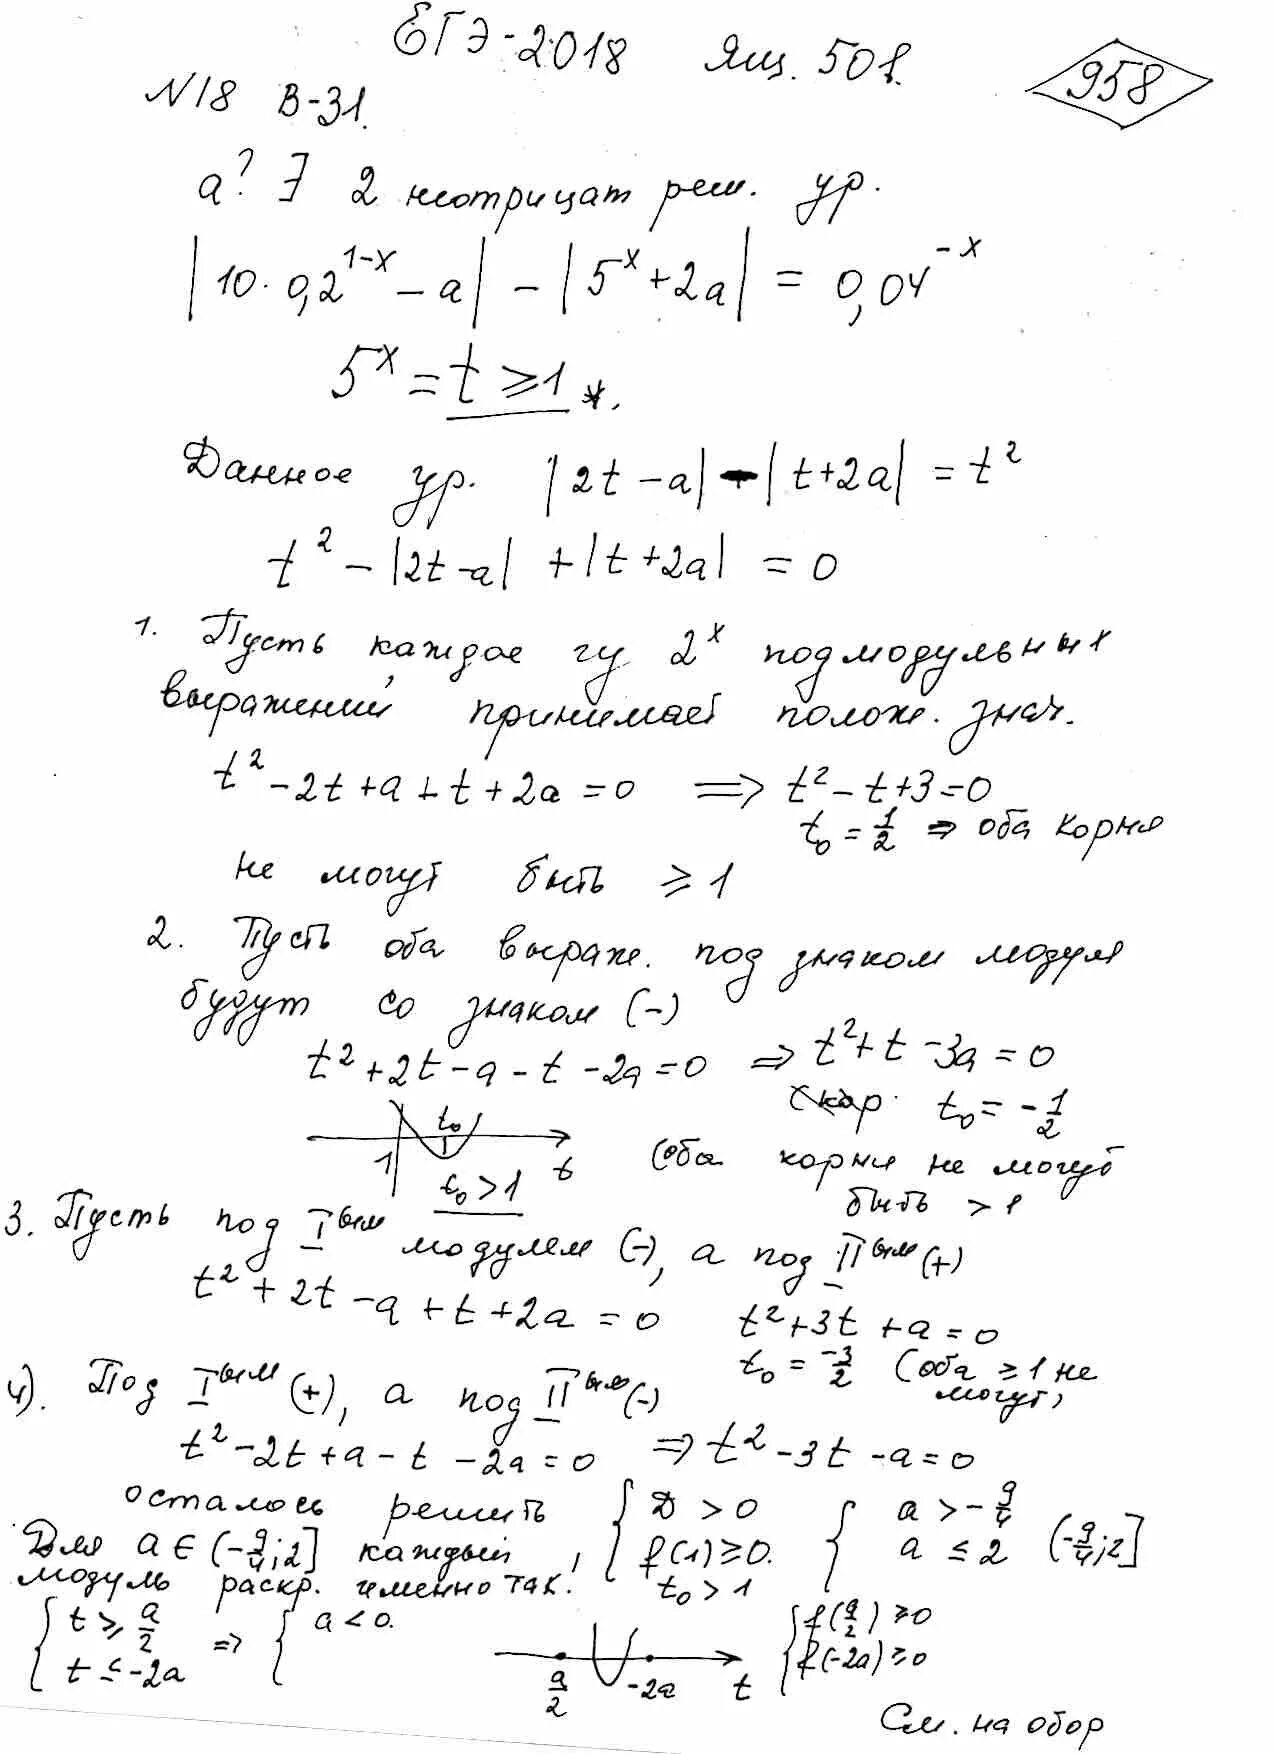 ЕГЭ-2018 Ящ. 50в.
958
N18 В-31.
a? ∃ 2 неотрицат реш. ур.
|10·0,2^{1-x} - a| - |5^x + 2a| = 0,04^{-x}
5^x = t ⩾ 1 *.
Данное ур. |2t - a| - |t + 2a| = t²
t² - |2t - a| + |t + 2a| = 0
1. Пусть каждое 2^х подмодульных
выражений принимает полож. знач.
t² - 2t + a + t + 2a = 0 ⟹ t² - t + 3 = 0
t₀ = 1/2 ⇒ оба корня
не могут быть ⩾ 1
2. Пусть оба выраж. под знаком модуля
будут со знаком (-)
t² + 2t - a - t - 2a = 0 ⇒ t² + t - 3a = 0
t₀ = -1/2
t₀
1 t
t₀ > 1
(оба корни не могут
быть > 1
3. Пусть под I^ым модулем (-), а под II^ым (+)
t² + 2t - a + t + 2a = 0 t² + 3t + a = 0
t₀ = -3/2 (оба ⩾ 1 не
могут)
4). Под I^ым (+), а под II^ым (-)
t² - 2t + a - t - 2a = 0 ⇒ t² - 3t - a = 0
осталось решить { D > 0 { a > -9/4
Для a ∈ (-9/4; 2] каждый , f(1) ⩾ 0. a ⩽ 2 (-9/4; 2]
модуль раскр. именно так. t₀ > 1
{ t ⩾ a/2 ⇒ { a < 0. { f(a/2) ⩾ 0
t ⩽ -2a f(-2a) ⩾ 0
a/2 -2a t
См. на обор